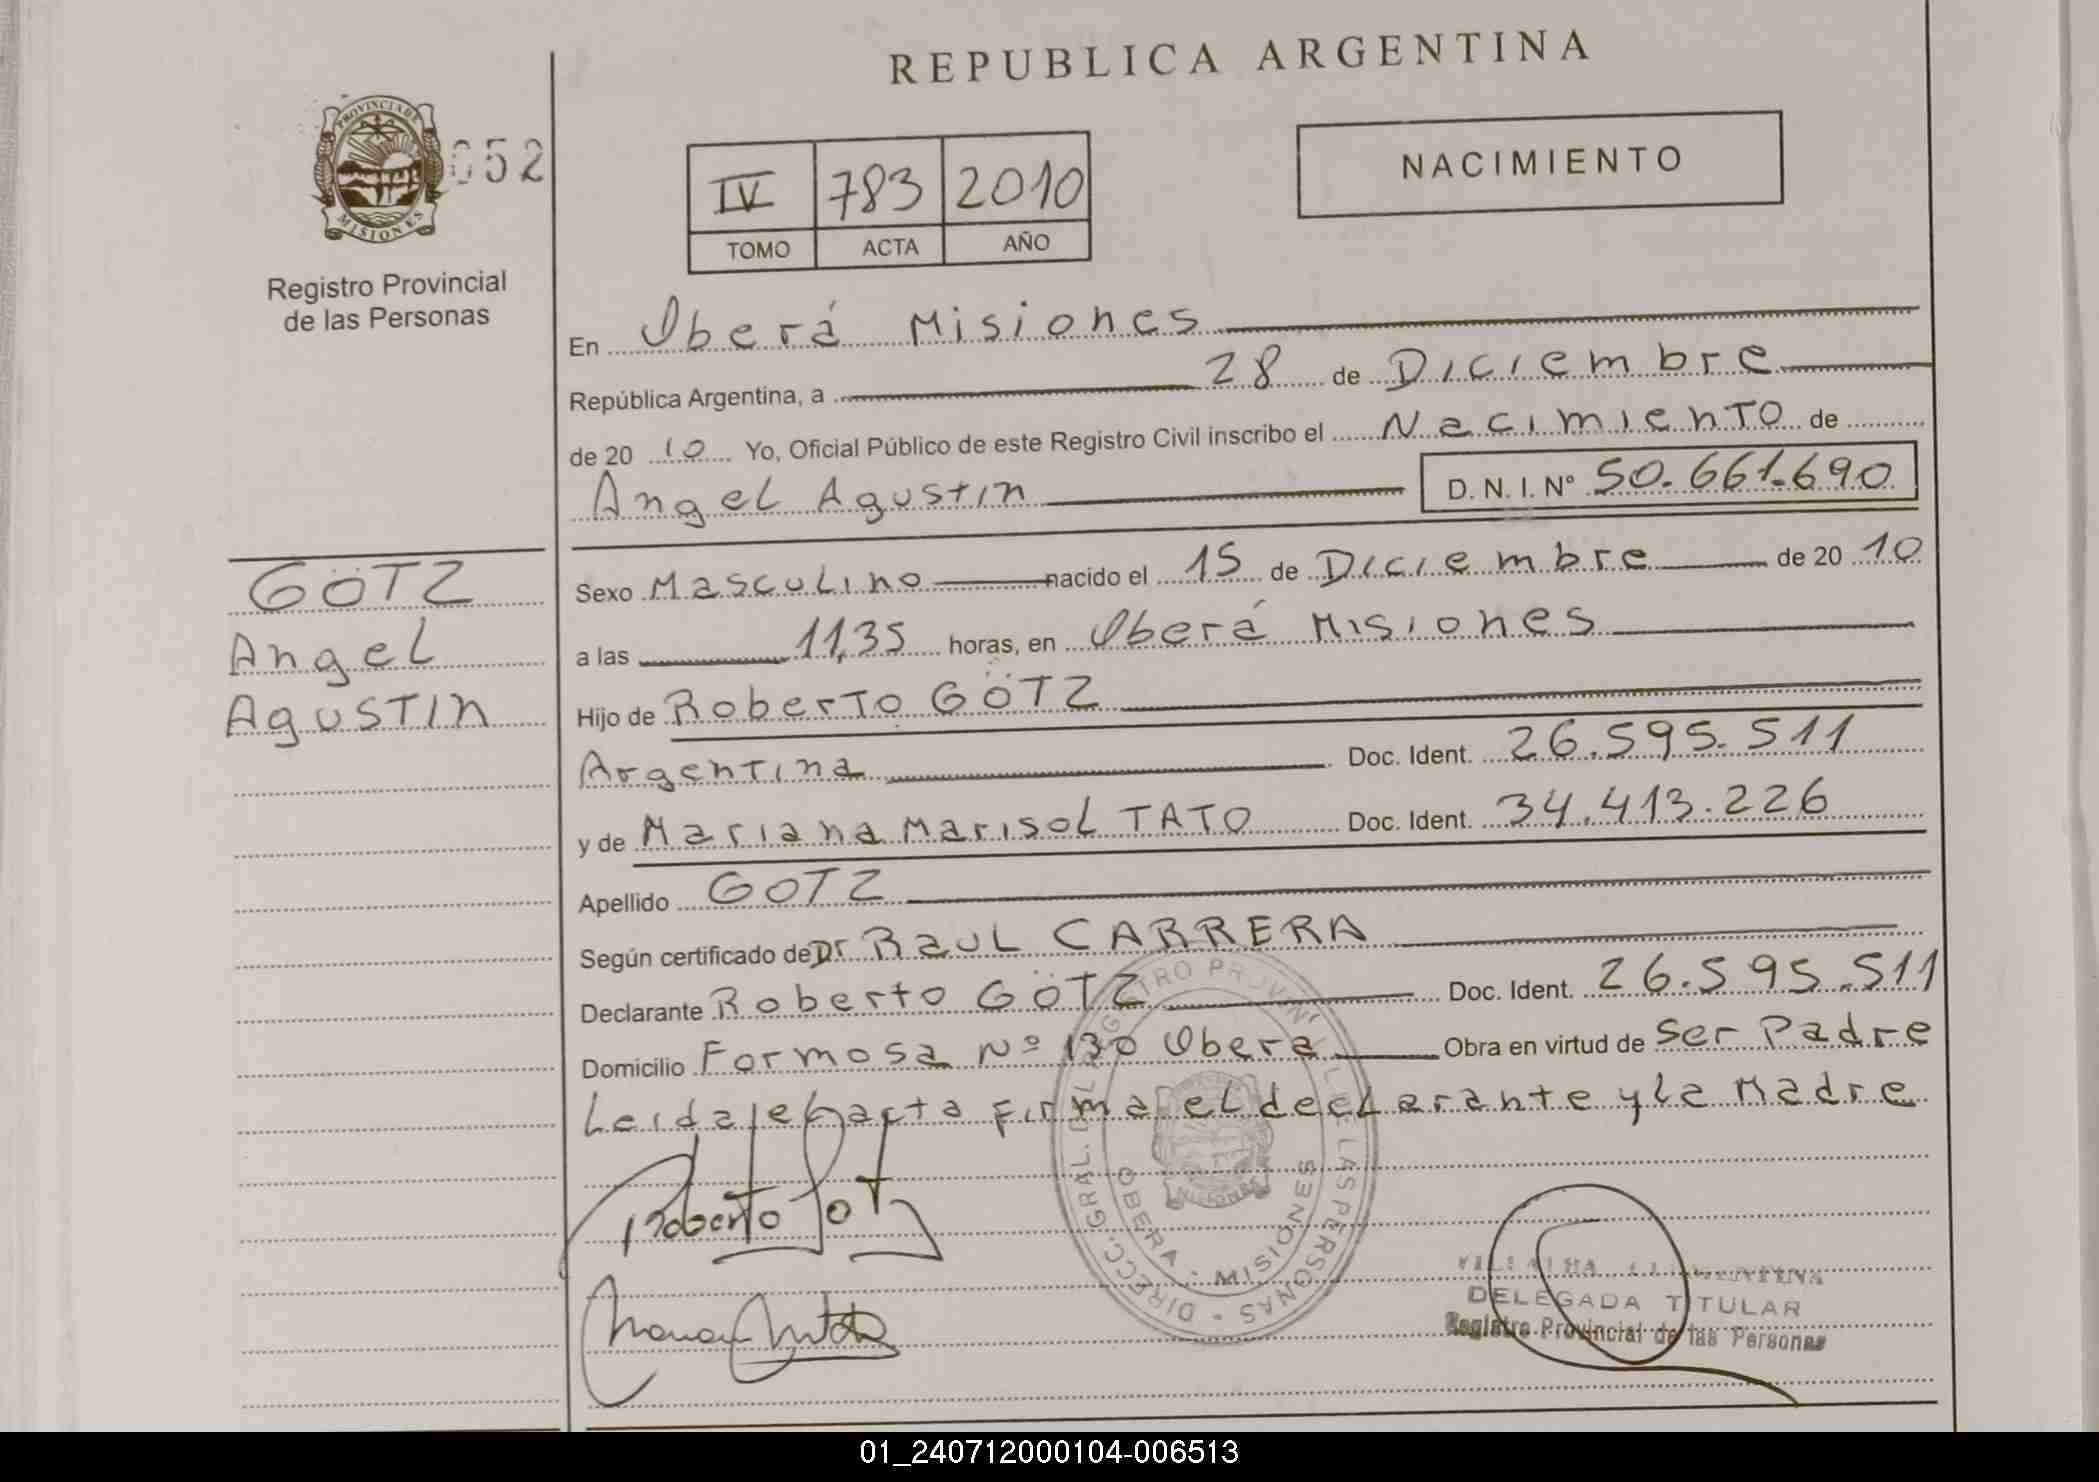 REPUBLICA ARGENTINA
PROVINCIA DE
MISIONES
052
Registro Provincial
de las Personas
IV 783 2010
TOMO ACTA AÑO
NACIMIENTO
En Oberá Misiones
República Argentina, a 28 de Diciembre
de 20 10 Yo, Oficial Público de este Registro Civil inscribo el Nacimiento de
Angel Agustin D. N. I. Nº 50.661.690
GÖTZ
Angel
Agustin
Sexo Masculino nacido el 15 de Diciembre de 20 10
a las 11,35 horas, en Oberá Misiones
Hijo de Roberto GÖTZ
Argentina Doc. Ident. 26.595.511
y de Mariana Marisol TATO Doc. Ident. 34.413.226
Apellido GOTZ
Según certificado de Dr Raul CARRERA
Declarante Roberto GÖTZ Doc. Ident. 26.595.511
Domicilio Formosa Nº 130 Obera Obra en virtud de Ser Padre
Leida el acta firma el declarante y la Madre
Roberto Gotz
DIRECC. GRAL. DEL REGISTRO PROVINCIAL DE LAS PERSONAS
OBERA - MISIONES
DELEGADA TITULAR
Registro Provincial de las Personas
01_240712000104-006513